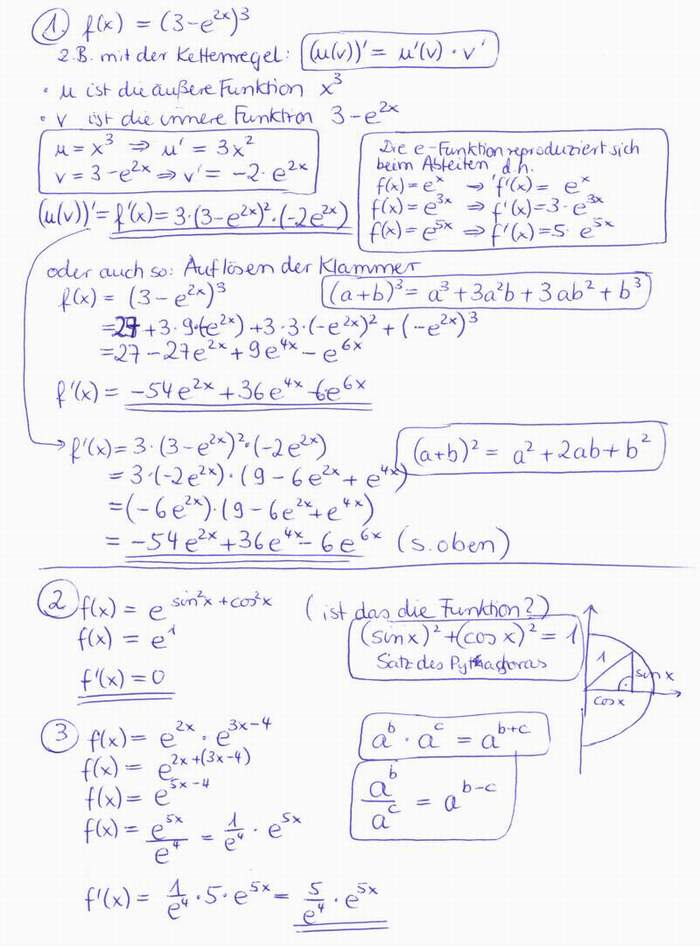 1. f(x) = (3-e^2x)^3
z.B. mit der Kettenregel: (u(v))' = u'(v) · v'
· u ist die äußere Funktion x^3
· v ist die innere Funktion 3-e^2x
u = x^3 ⇒ u' = 3x^2
v = 3-e^2x ⇒ v' = -2·e^2x
Die e-Funktion reproduziert sich
beim Ableiten, d.h.
f(x) = e^x → f'(x) = e^x
f(x) = e^3x ⇒ f'(x) = 3·e^3x
f(x) = e^5x ⇒ f'(x) = 5·e^5x
(u(v))' = f'(x) = 3·(3-e^2x)^2·(-2e^2x)
oder auch so: Auflösen der Klammer
f(x) = (3-e^2x)^3
(a+b)^3 = a^3 + 3a^2b + 3ab^2 + b^3
= 27 + 3·9·(-e^2x) + 3·3·(-e^2x)^2 + (-e^2x)^3
= 27 - 27e^2x + 9e^4x - e^6x
f'(x) = -54e^2x + 36e^4x - 6e^6x
f'(x) = 3·(3-e^2x)^2·(-2e^2x)
(a+b)^2 = a^2 + 2ab + b^2
= 3·(-2e^2x)·(9 - 6e^2x + e^4x)
= (-6e^2x)·(9 - 6e^2x + e^4x)
= -54e^2x + 36e^4x - 6e^6x (s. oben)
2 f(x) = e^sin^2x + cos^2x (ist das die Funktion?)
f(x) = e^1
(sin x)^2 + (cos x)^2 = 1
Satz des Pythagoras
f'(x) = 0
1
sin x
cos x
3 f(x) = e^2x · e^3x-4
a^b · a^c = a^b+c
f(x) = e^2x+(3x-4)
f(x) = e^5x-4
a^b/a^c = a^b-c
f(x) = e^5x/e^4 = 1/e^4 · e^5x
f'(x) = 1/e^4 · 5 · e^5x = 5/e^4 · e^5x